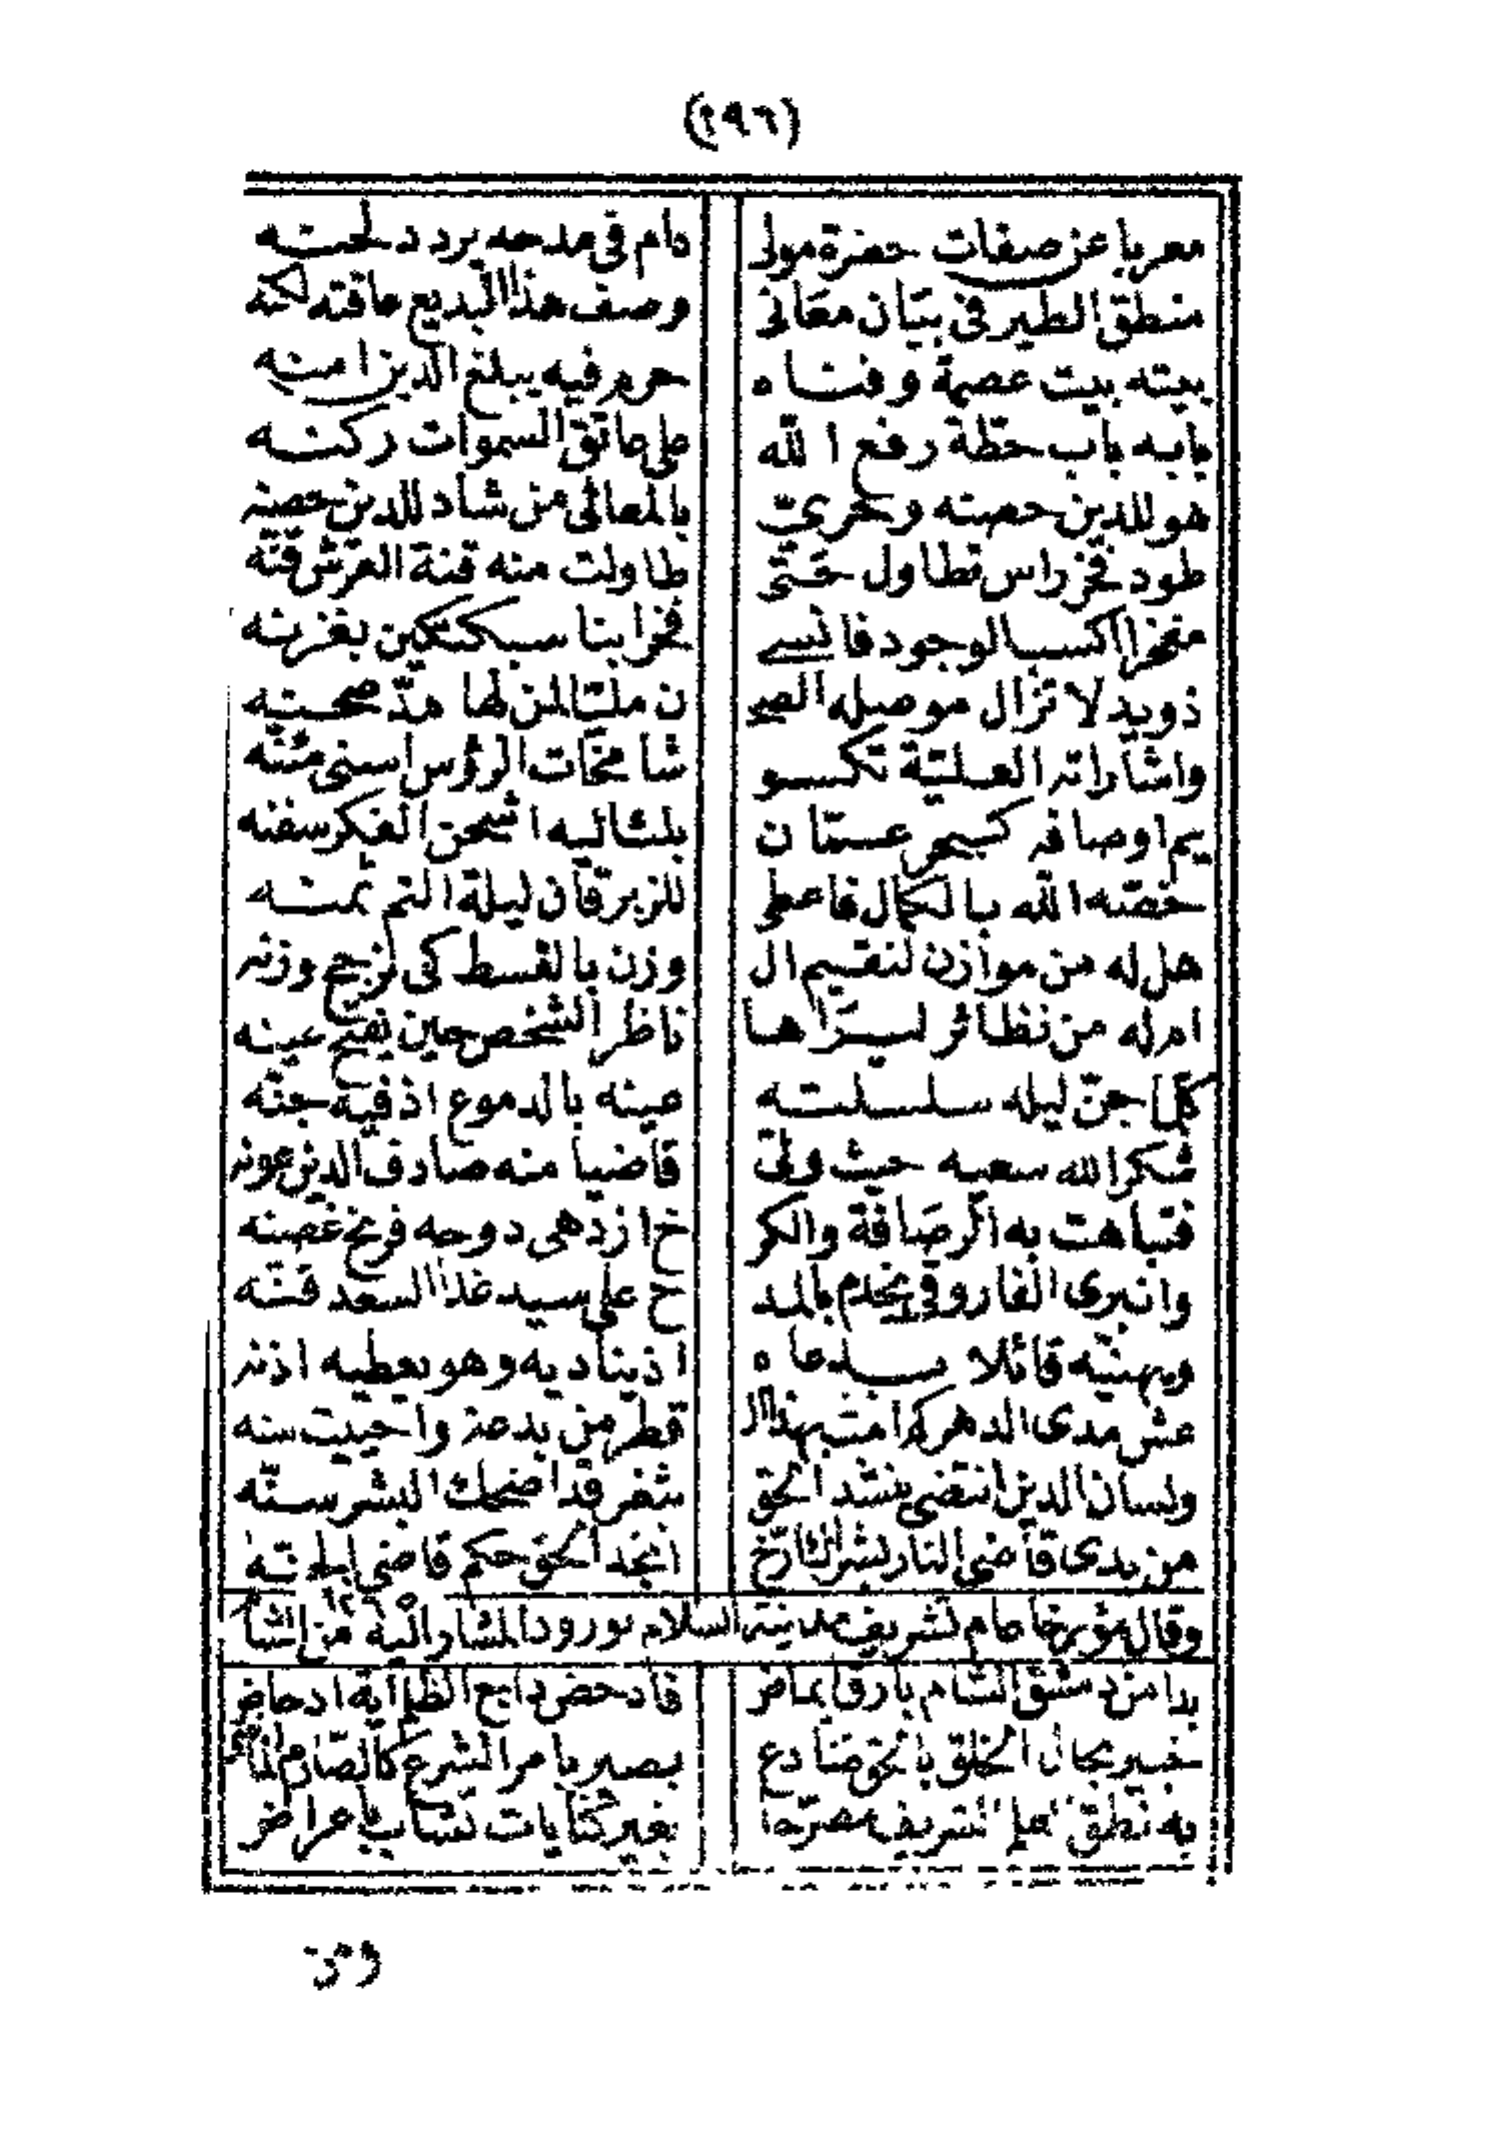 (٢٩٦)
معربا عن صفات حضرة مولى دام في مدحه يردد لحنه
منطق الطير في بيان معاني وصف هذا البديع عاقته لكنه
بيته بيت عصمة وفناه حرم فيه يبلغ الدين امنه
بابه باب حطة رفع الله على عاتق السموات ركنه
هو للدين حصنه وحريّ بالمعالي من شاد للدين حصنه
طود فخر راس تطاول حتى طاولت منه قنة العرش قنه
مفخرا اكسب الوجود فانسى فخر ابنا سبكتكين بغزنه
ذو يد لا تزال موصله المـ ن ملتا لمن لها مدّ صحنه
واشاراته العلية تكسو شامخات الرؤس اسنى
يم اوصافه كبحر عمّان بلئاليه اشحن الفكر سفنه
خصّه الله بالكمال فاعطى للزبرقان ليلة التم ثمنه
هل له من موازن لنقيم ال وزن بالقسط كي نرجح وزنه
ام له من نظائر ليراها ناظر الشخص حين يفتح عينه
كلما جنّ ليله سلسلته عينه بالدموع اذ فيه جنّه
شكر الله سعيه حيث ولّى قاضيا منه صادف الدين عونه
فتباهت به الرصافة والكر خ ازدهى دوحه فرنح غصنه
وانبرى الفاروقي يخدم بالمد ح على سيد غذا السعد قنّه
ويهنيّه قائلا بدعاه اذ يناديه وهو يعطيه اذنه
عش مدى الدهر كم امت بهذا ال قطر من بدعة واحييت سنه
ولسان الدين انتضى ينشد الحق بثغر قد اضحك البشر سنّه
من يدى قاضي النار بشراك ارّخ انجد الحق حكم قاضي الجنّه
وقال مؤرخا عام تشريف مدينة السلام بورود المشار اليه من الشام
بدا من دمشق الشام بارق ايماض فادحض داجي الظلم اية ادحاض
خبير بحال الخلق بالحق صادع بصير بامر الشرع كالصارم الماضي
به نطق العلم الشريف مصرّحا بغير كنايات تشاب باعراض